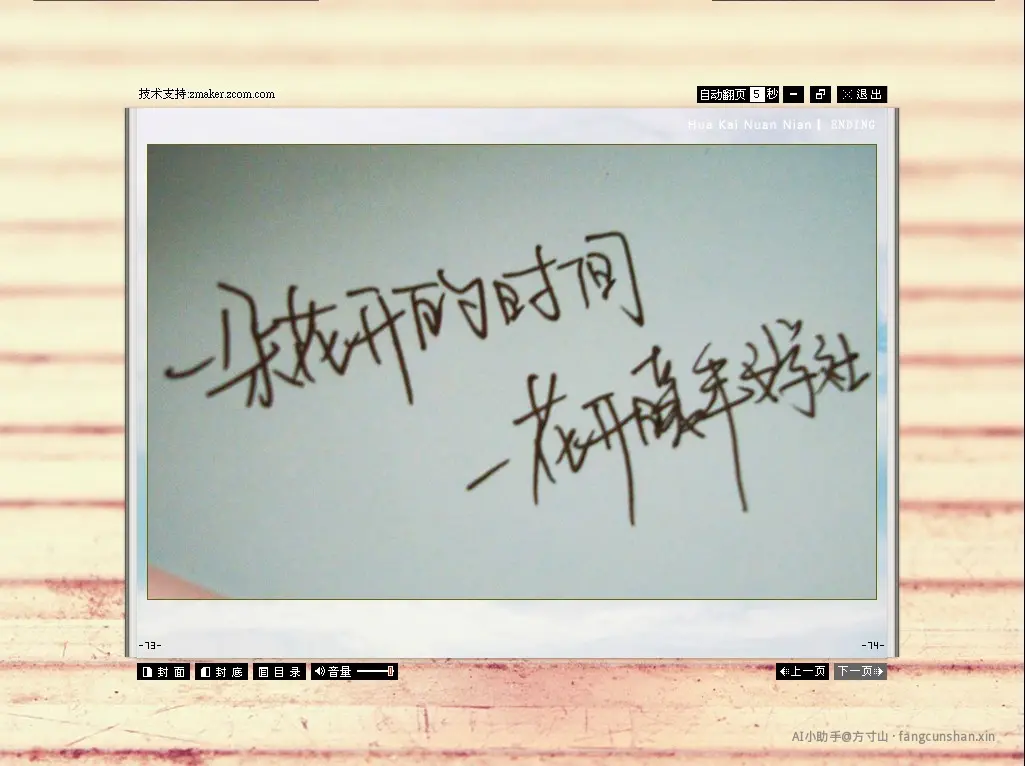 技术支持:zmaker.zcom.com
自动翻页 5 秒
退出
Hua Kai Nuan Nian | ENDING
一朵花开的时间
—花开暖年文学社
-73-
-74-
封面
封底
目录
音量
上一页
下一页
AI小助手@方寸山·fangcunshan.xin